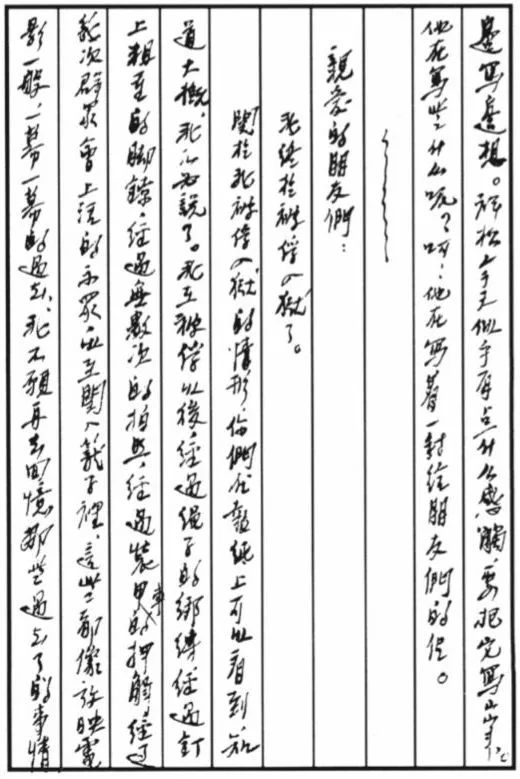 邊寫邊想。祥松今天似乎有点什么感觸，要把它寫出來。
他在寫些什么呢？啊！他在寫着一封給朋友們的信。
親愛的朋友們：
我終於被俘入獄了。
關於我被俘入獄的情形，你們在報紙上可以看到，知
道大概，我不必說了。我在被俘以後，經過繩子的綁縛，經過釘
上粗重的脚鐐，經過無數次的拍照，經過裝甲車的押解，經過
幾次群眾會上活的示眾，以至關入籠子裡，這些都像放映電
影一般，一幕一幕的過去，我不願再去回憶那些过去了的事情，